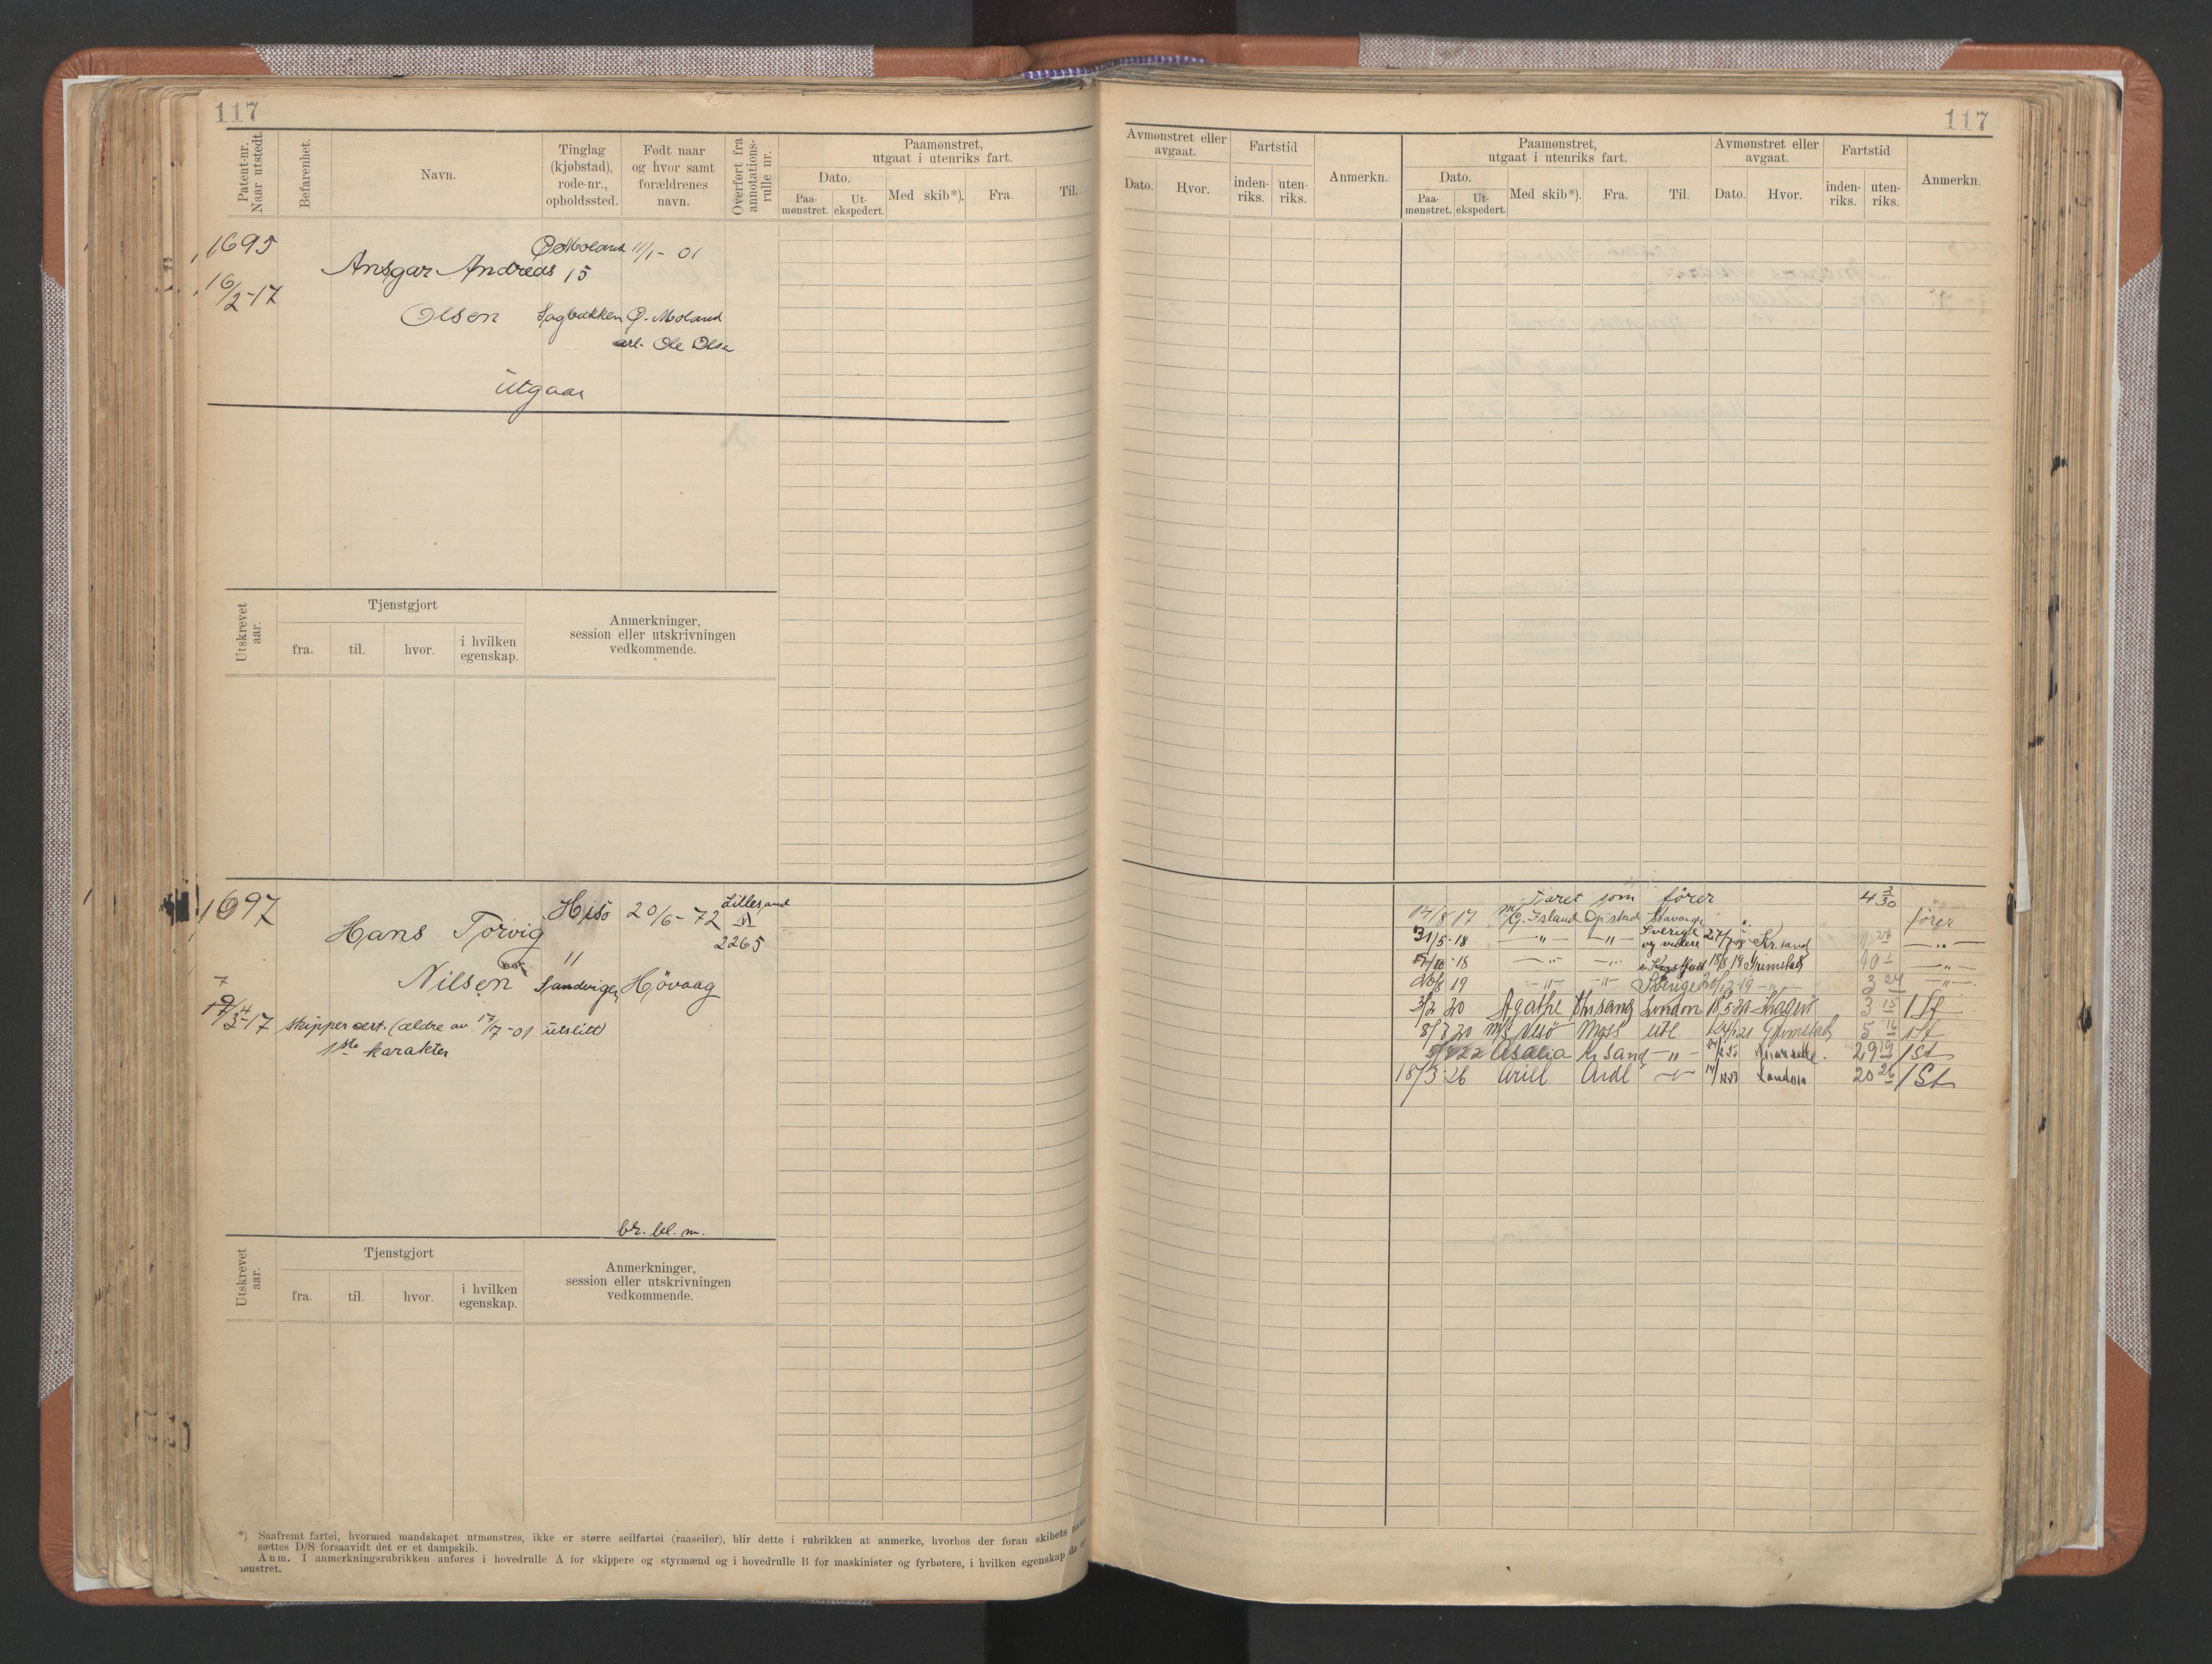 117
Patent-nr. Naar utstedt.
Befarenhet.
Navn.
Tinglag (kjøbstad), rode-nr., opholdssted.
Født naar og hvor samt forældrenes navn.
Overført fra annotations-rulle nr.
Paamønstret, utgaat i utenriks fart.
Dato.
Paa-mønstret.
Ut-ekspedert.
Med skib*).
Fra.
Til.
1695
Ø. Moland 11/1-01
Ansgar Andreas 15
16/2-17
Olsen Sagbakken Ø. Moland
arb. Ole Olsen
Utgaar
Utskrevet aar.
Tjenstgjort
fra.
til.
hvor.
i hvilken egenskap.
Anmerkninger, session eller utskrivningen vedkommende.
1697
Hisö 20/6-72 Lillesand
A
2265
Hans Torvig "
Nilsen Sandvigen Hövaag
7
/3-17 skipper cert. (ældre av 17/7-01 utslitt)
1ste karakter
br. bl. m.
Utskrevet aar.
Tjenstgjort
fra.
til.
hvor.
i hvilken egenskap.
Anmerkninger, session eller utskrivningen vedkommende.
*) Saafremt fartøi, hvormed mandskapet utmønstres, ikke er større seilfartøi (raaseiler), blir dette i rubrikken at anmerke, hvorhos der foran skibets navn
sættes D/S forsaavidt det er et dampskib.
Anm. I anmerkningsrubrikken anføres i hovedrulle A for skippere og styrmænd og i hovedrulle B for maskinister og fyrbøtere, i hvilken egenskap de er
mønstret.
117
Avmønstret eller avgaat.
Dato.
Hvor.
Fartstid
inden-riks.
uten-riks.
Anmerkn.
Paamønstret, utgaat i utenriks fart.
Dato.
Paa-mønstret.
Ut-ekspedert.
Med skib*).
Fra.
Til.
Avmønstret eller avgaat.
Dato.
Hvor.
Fartstid
inden-riks.
uten-riks.
Anmerkn.
Faret som fører 4 3/30
14/8 17 G. Island Opstad Stavanger fører
31/5-18 —"— —"— Sverige og videre Kr.sand —"—
-18 —"— —"— 18/8 19 Grimstad 10 —"—
19 —"— —"— Sverige 20/12-19 —"— 3 24 —"—
3/2 20 Agathe Khrsand London Skagen 3 15 1 St
8/7 20 Utl Grimstad 5 16 1 St
22 Asalia Kr.sand —"— Marseille 29 19 1 St
18/3 26 Ariel Ardl 14/ London 20 26 1 St